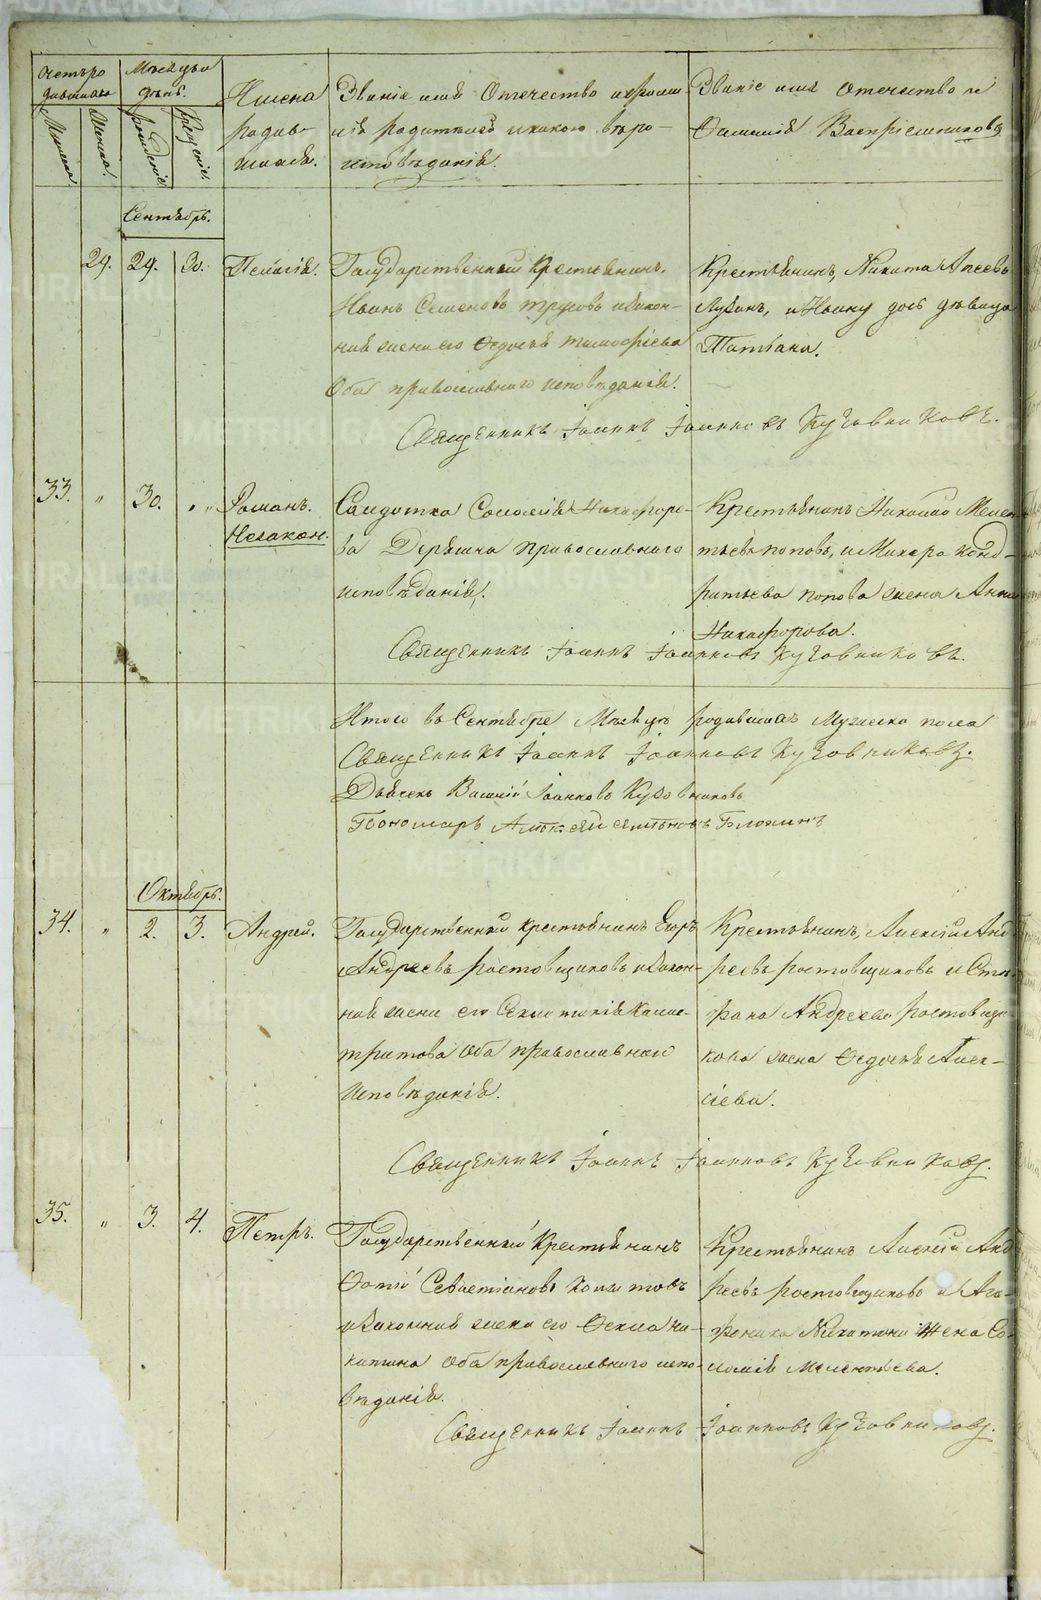 Счетъ ро
дившихся
Мѣсяцъ и
день.
Мужеска
Женска.
рожденіе
Крещеніе.
Имена
родив-
шихся.
Званіе имя Отчество и фамил-
ія родителей и какого вѣро-
исповѣданія.
Званіе имя отечество и
Фамилія Воспріемниковъ
Сентябрь.
29. 29. 30. Пелагія.
Государственный Крестьянинъ,
Иоанъ Семеновъ Трусовъ и закон-
ная жена его Ѳедосья Тимоѳеева
Оба православнаго исповѣданія.
Крестьянинъ, Никита Алеевъ
Лузинъ, и Иоанну дочь дѣвица
Татіана.
Священникъ Іоаннъ Іоанновъ Кузовниковъ.
33. " 30. " " Романъ.
Незакон.
Солдатка Соломія Никифоро-
ва Дерябина православнаго
исповѣданія.
Крестьянинъ Николай Мелен-
тьевъ поповъ, и Макара Конд-
ратьева попова жена Анна
Никифорова.
Священникъ Іоаннъ Іоанновъ Кузовниковъ.
Итого въ Сентябре Мѣсяцѣ родившихъ Мужеска пола
Священникъ Іоаннъ Іоанновъ Кузовниковъ.
Дьячекъ Василій Іоанновъ Кузовниковъ
Пономарь Алексѣй
Октябрь.
34. " 2. 3. Андрей.
Государственный крестьянинъ Егоръ
Андреевъ ростовщиковъ и Закон-
ная жена его Секлитикія Калис-
тратова оба православнаго
Исповѣданія.
Крестьянинъ, Алексѣй Анд
реевъ ростовщиковъ и
Андреева ростовщи
кова жена Ѳедосья Алек-
сіева.
Священникъ Іоаннъ Іоанновъ Кузовниковъ.
35. " 3. 4. Петръ.
Государственный Крестьянинъ
Фотій Севастіановъ Копытовъ
и Законная жена его Фекла Ни-
китина оба православнаго испо-
вѣданія.
Крестьянинъ Алексѣй Анд
реевъ ростовщиковъ и Ага-
фоника Никитина Жена Со-
ломія Мелентьева.
Священникъ Іоаннъ Іоанновъ Кузовниковъ.
METRIKI.GASO-URAL.RU